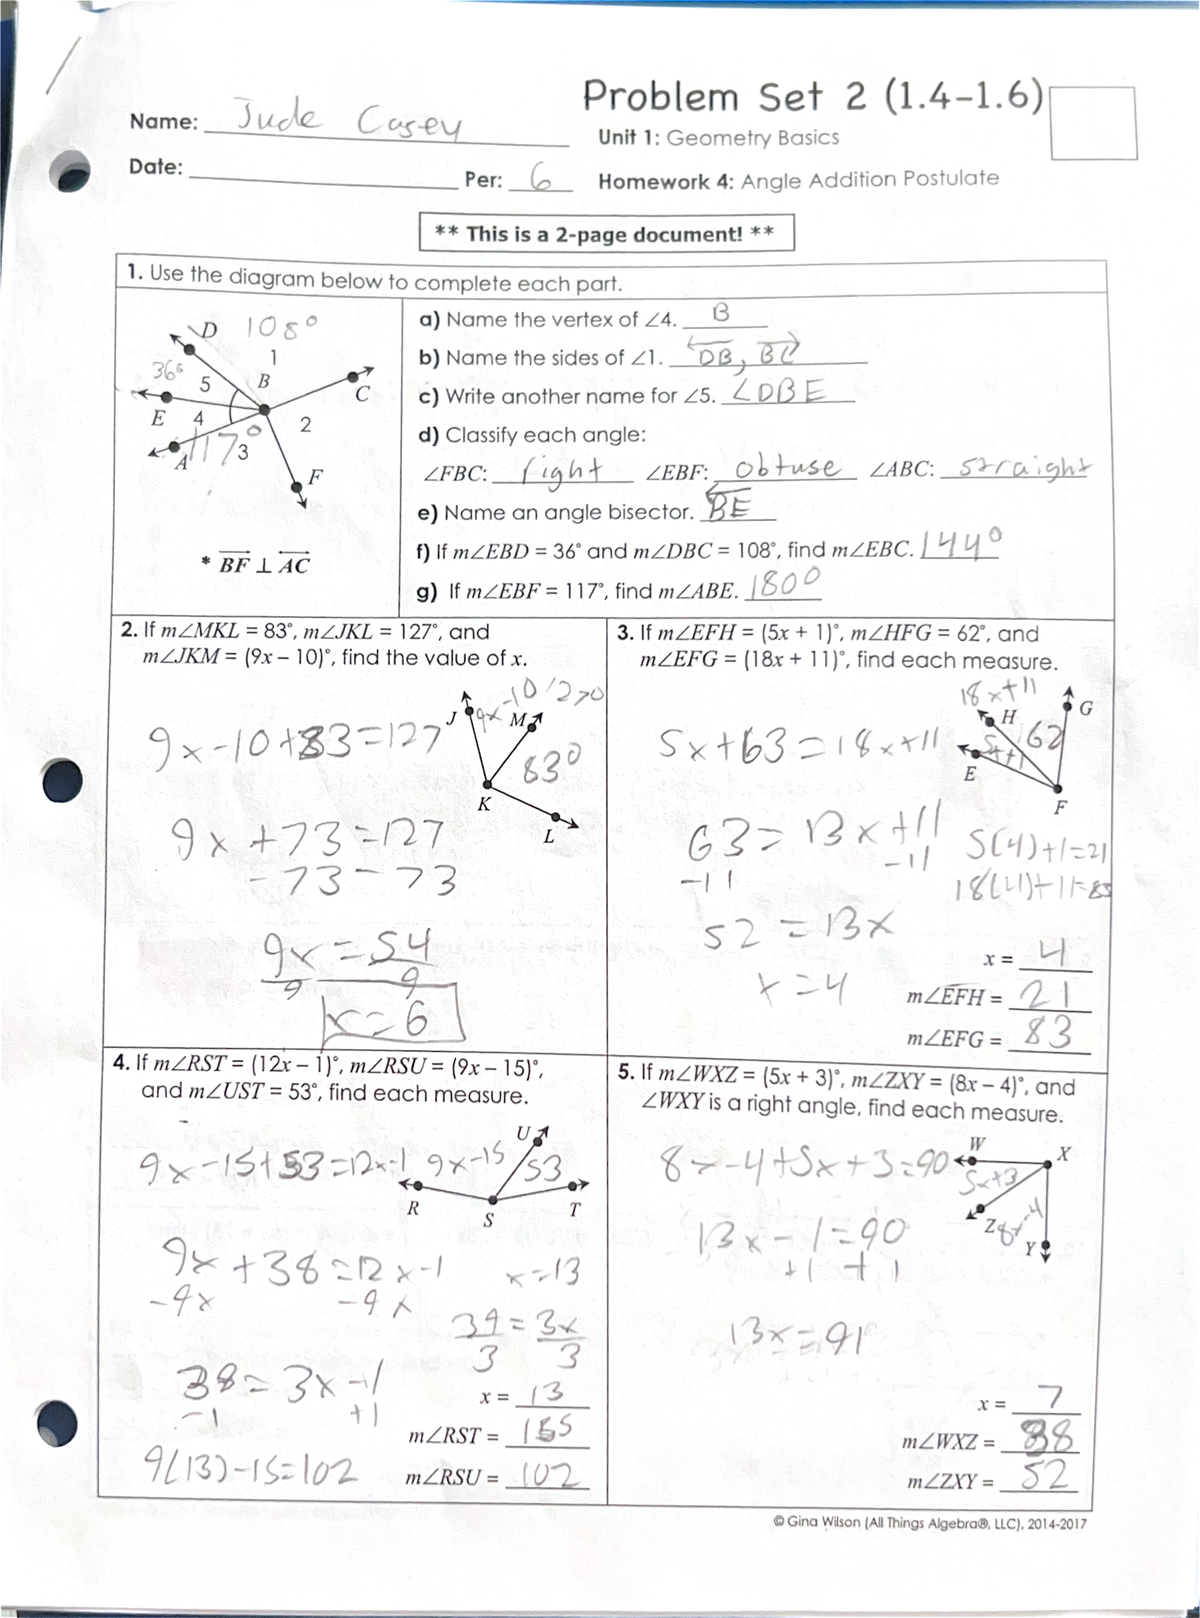 Problem Set 2 (1.4–1.6)
Name: Jude Casey
Unit 1: Geometry Basics
Date:
Per: 6
Homework 4: Angle Addition Postulate
** This is a 2-page document! **
1. Use the diagram below to complete each part.
D 108°
1
36°
5
B
C
E
4
2
A
117°
3
F
* BF ⊥ AC
a) Name the vertex of ∠4. B
b) Name the sides of ∠1. DB, BC
c) Write another name for ∠5. ∠DBE
d) Classify each angle:
∠FBC: right ∠EBF: obtuse ∠ABC: straight
e) Name an angle bisector. BE
f) If m∠EBD = 36° and m∠DBC = 108°, find m∠EBC. 144°
g) If m∠EBF = 117°, find m∠ABE. 180°
2. If m∠MKL = 83°, m∠JKL = 127°, and
m∠JKM = (9x – 10)°, find the value of x.
9x-10
J
M
83°
K
L
9x-10+83=127
9x+73=127
-73 -73
9x=54
9 9
x=6
3. If m∠EFH = (5x + 1)°, m∠HFG = 62°, and
m∠EFG = (18x + 11)°, find each measure.
18x+11
G
H
62
5x+1
E
F
5x+63=18x+11
63=13x+11
-11 -11
5(4)+1=21
18(4)+11=83
52=13x
x=4
x = 4
m∠EFH = 21
m∠EFG = 83
4. If m∠RST = (12x – 1)°, m∠RSU = (9x – 15)°,
and m∠UST = 53°, find each measure.
U
9x-15+53=12x-1
9x-15
53
R
S
T
9x+38=12x-1
-9x -9x
x=13
39=3x
3 3
38=3x-1
-1 +1
9(13)-15=102
x = 13
m∠RST = 155
m∠RSU = 102
5. If m∠WXZ = (5x + 3)°, m∠ZXY = (8x – 4)°, and
∠WXY is a right angle, find each measure.
W
X
5x+3
Z
8x-4
Y
8x-4+5x+3=90
13x-1=90
+1 +1
13x=91
x = 7
m∠WXZ = 38
m∠ZXY = 52
© Gina Wilson (All Things Algebra®, LLC), 2014-2017